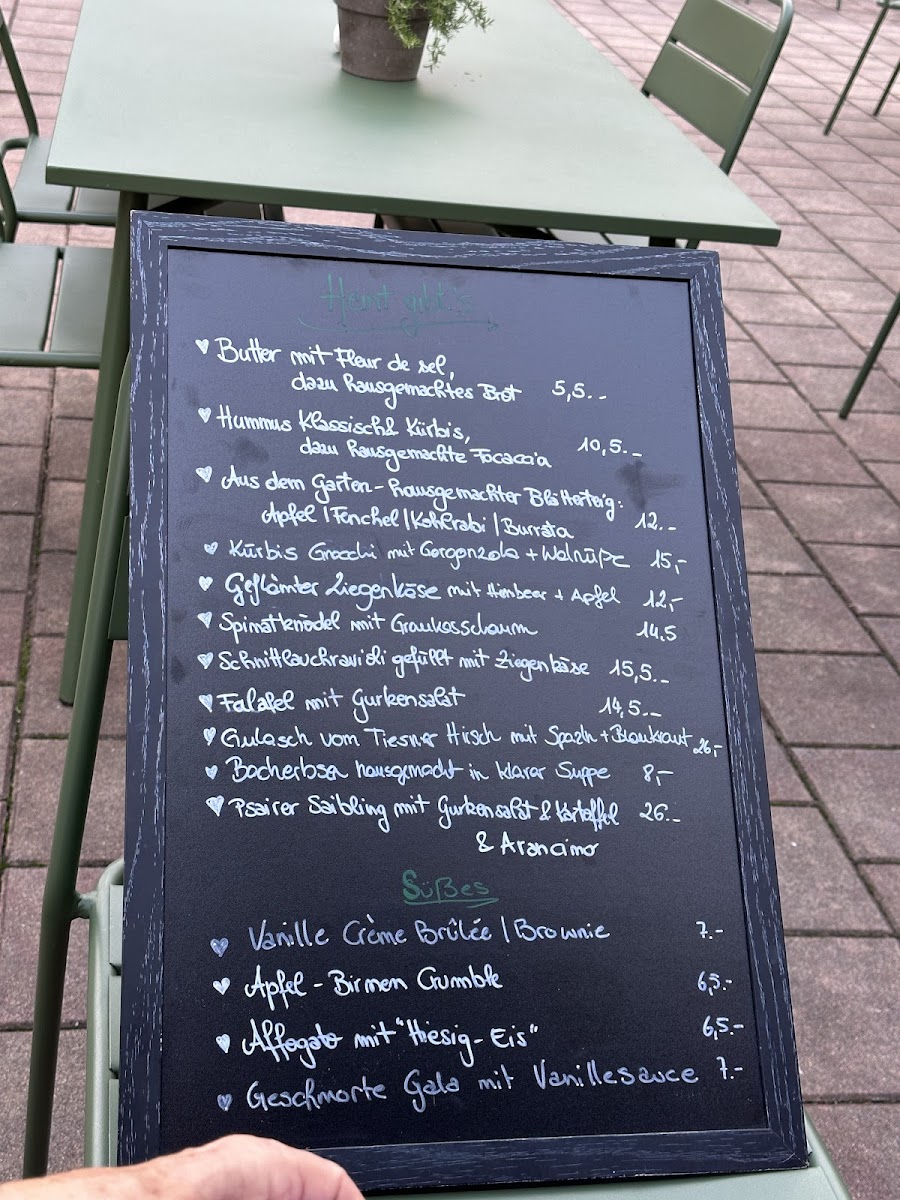 Heut gibt's
Butter mit Fleur de sel,
dazu hausgemachtes Brot 5,5.-
Hummus Klassisch & Kürbis,
dazu hausgemachte Focaccia 10,5.-
Aus dem Garten - hausgemachter Blätterteig:
Apfel | Fenchel | Kohlrabi | Burrata 12.-
Kürbis Gnocchi mit Gorgonzola + Walnüße 15,-
Geflämter Ziegenkäse mit Himbeer + Apfel 12,-
Spinatknödel mit Graukasschaum 14.5
Schnittlauchravioli gefüllt mit Ziegenkäse 15,5.-
Falafel mit Gurkensalat 14,5.-
Gulasch vom Tiesner Hirsch mit Spazln + Blaukraut 26,-
Bacherbsen hausgemacht in klarer Suppe 8,-
Psairer Saibling mit Gurkensalat & Kartoffel 26.-
& Arancino
Süßes
Vanille Crème Brûlée | Brownie 7.-
Apfel - Birnen Crumble 6,5.-
Affogato mit "Hiesig - Eis" 6,5.-
Geschmorte Gala mit Vanillesauce 7.-